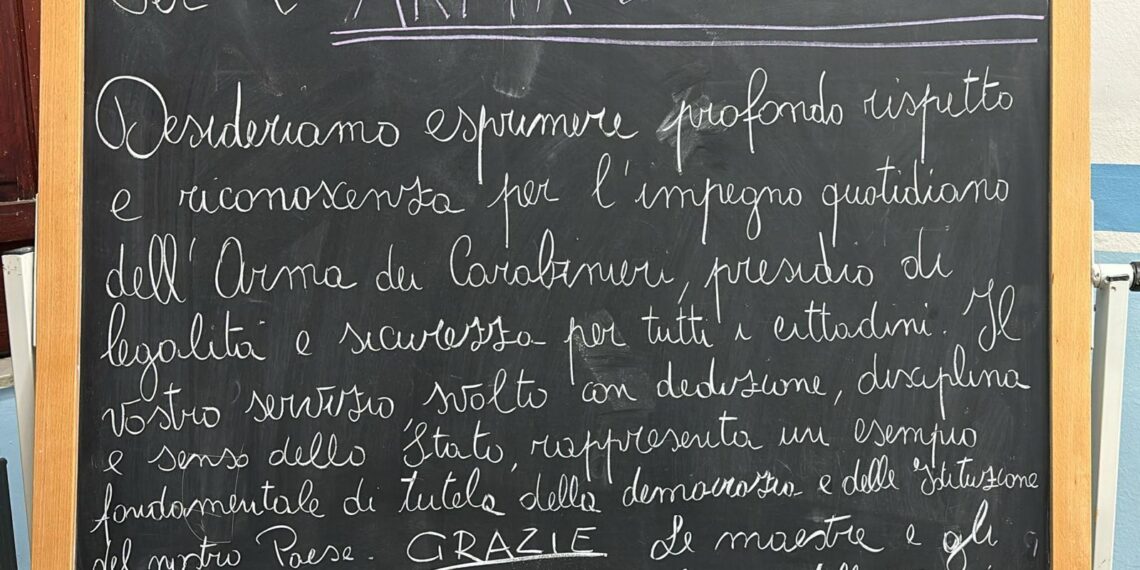 Per l' ARMA
Desideriamo esprimere profondo rispetto
e riconoscenza per l'impegno quotidiano
dell'Arma dei Carabinieri, presidio di
legalità e sicurezza per tutti i cittadini. Il
vostro servizio, svolto con dedizione, disciplina
e senso dello Stato, rappresenta un esempio
fondamentale di tutela della democrazia e delle Istituzione
del nostro Paese. GRAZIE Le maestre e gli